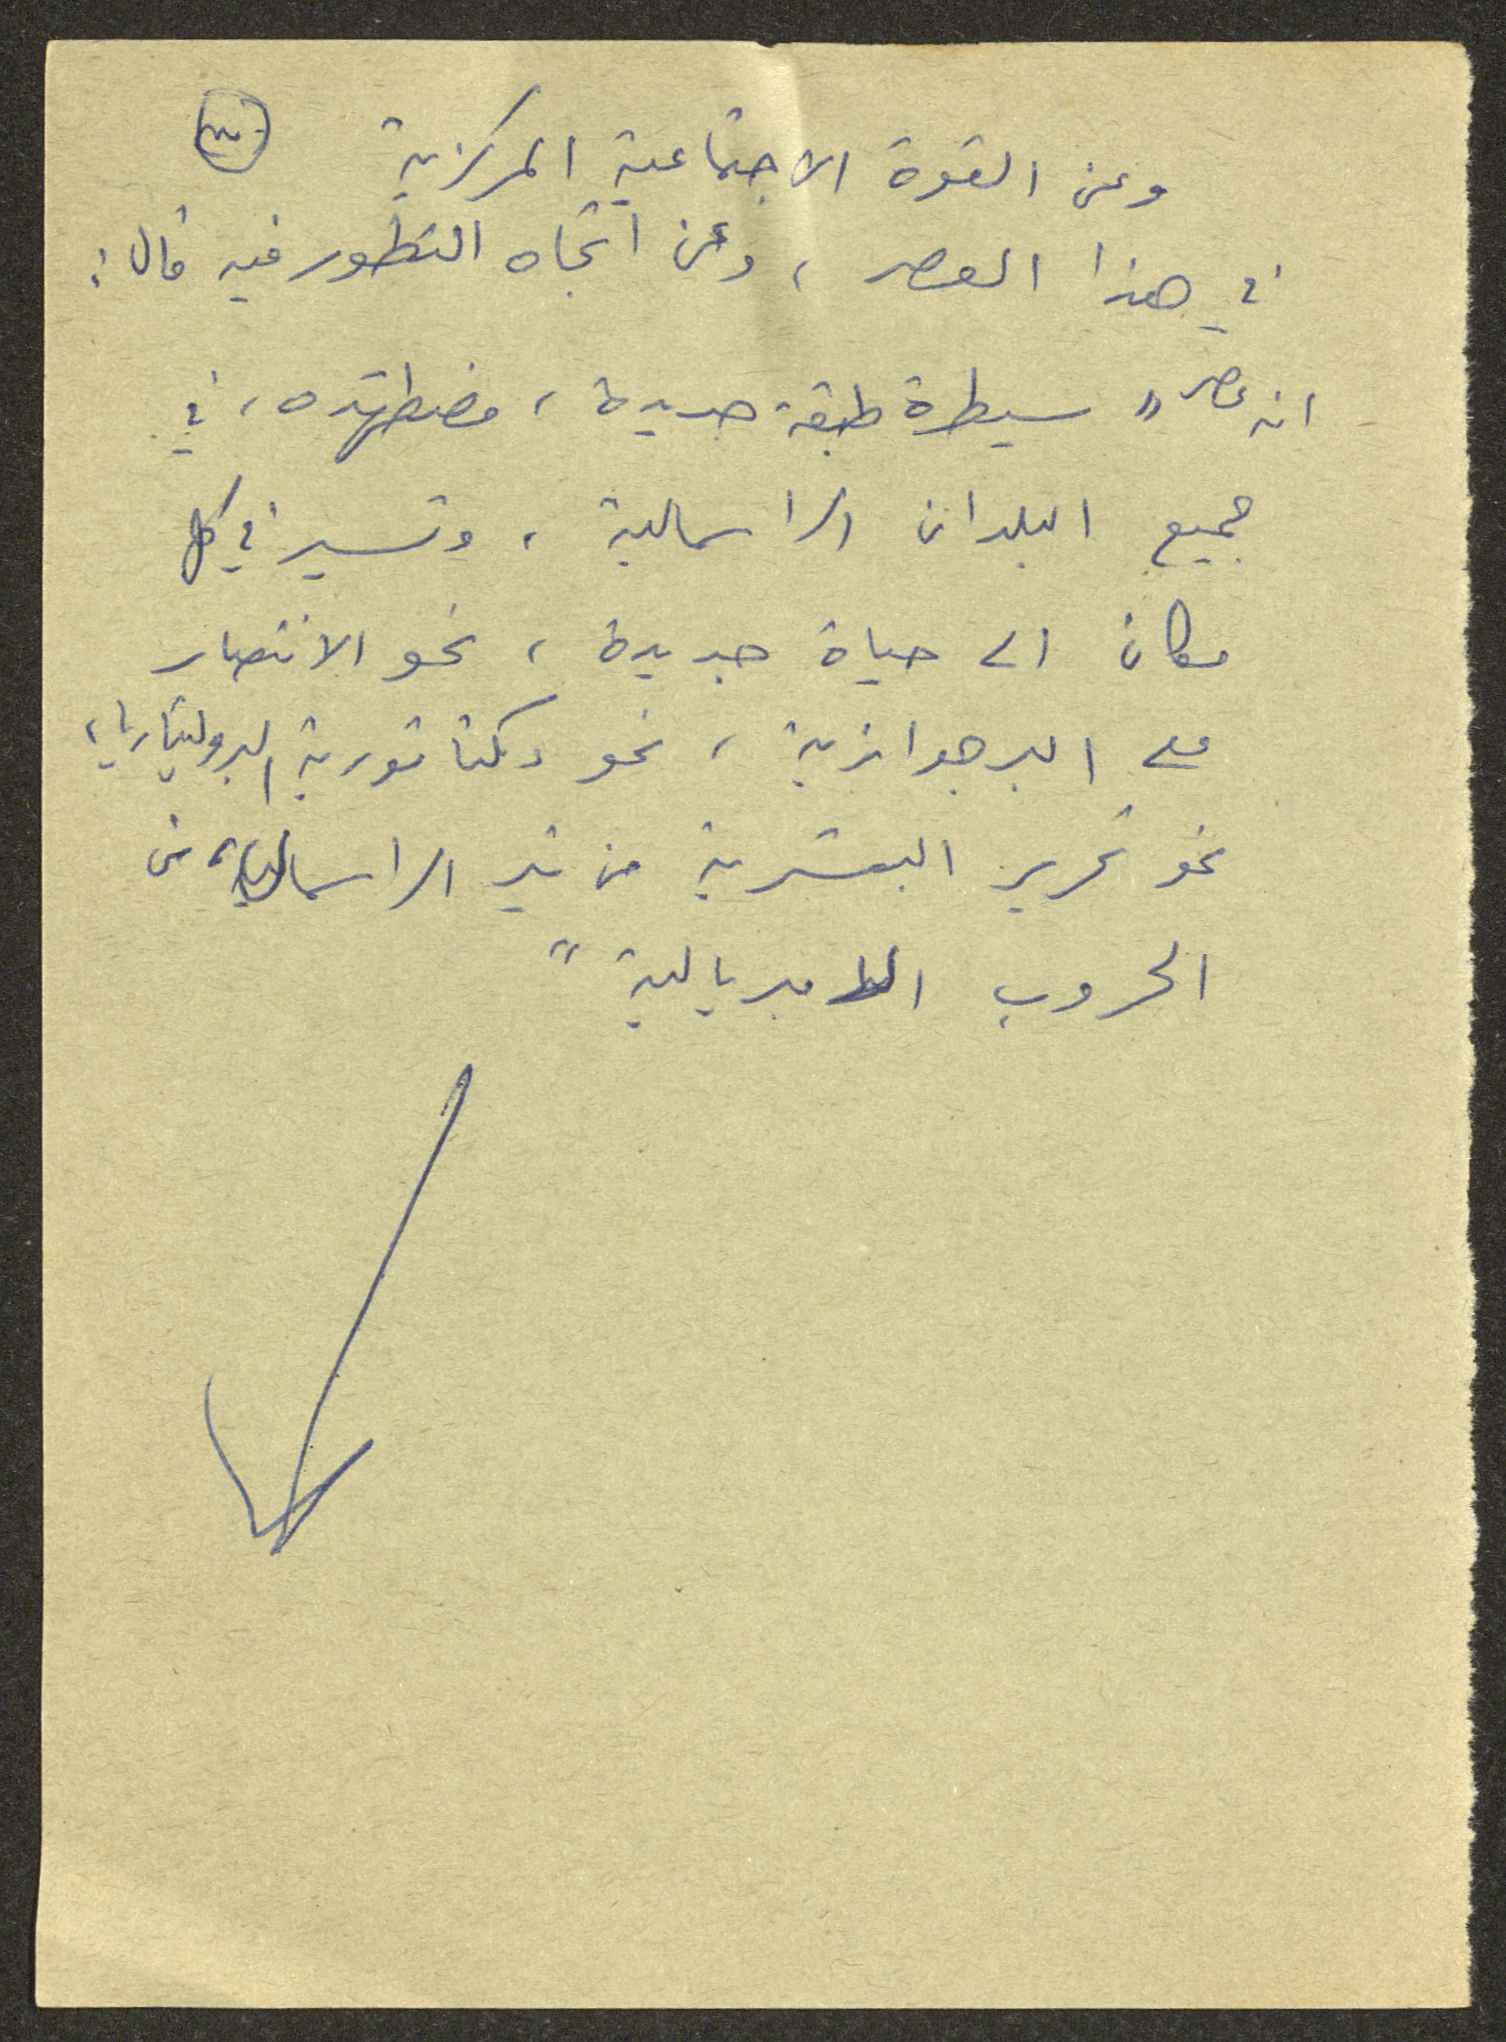 وعن القوة الاجتماعية المركزية
في هذا العصر، وعن اتجاه التطور فيه قال:
انه عصر " سيطرة طبقة جديدة، مضطهده، في
جميع البلدان الراسمالية، وتسير في كل
مكان الى حياة جديدة، نحو الانتصار
على البرجوازية، نحو دكتاتورية البروليتاريا،
نحو تحرير البشرية من نير الراسمالية، من
الحروب الامبريالية "